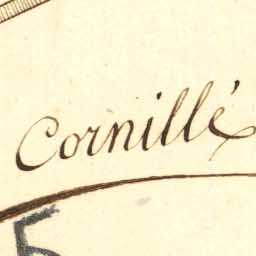 Cornillé
5